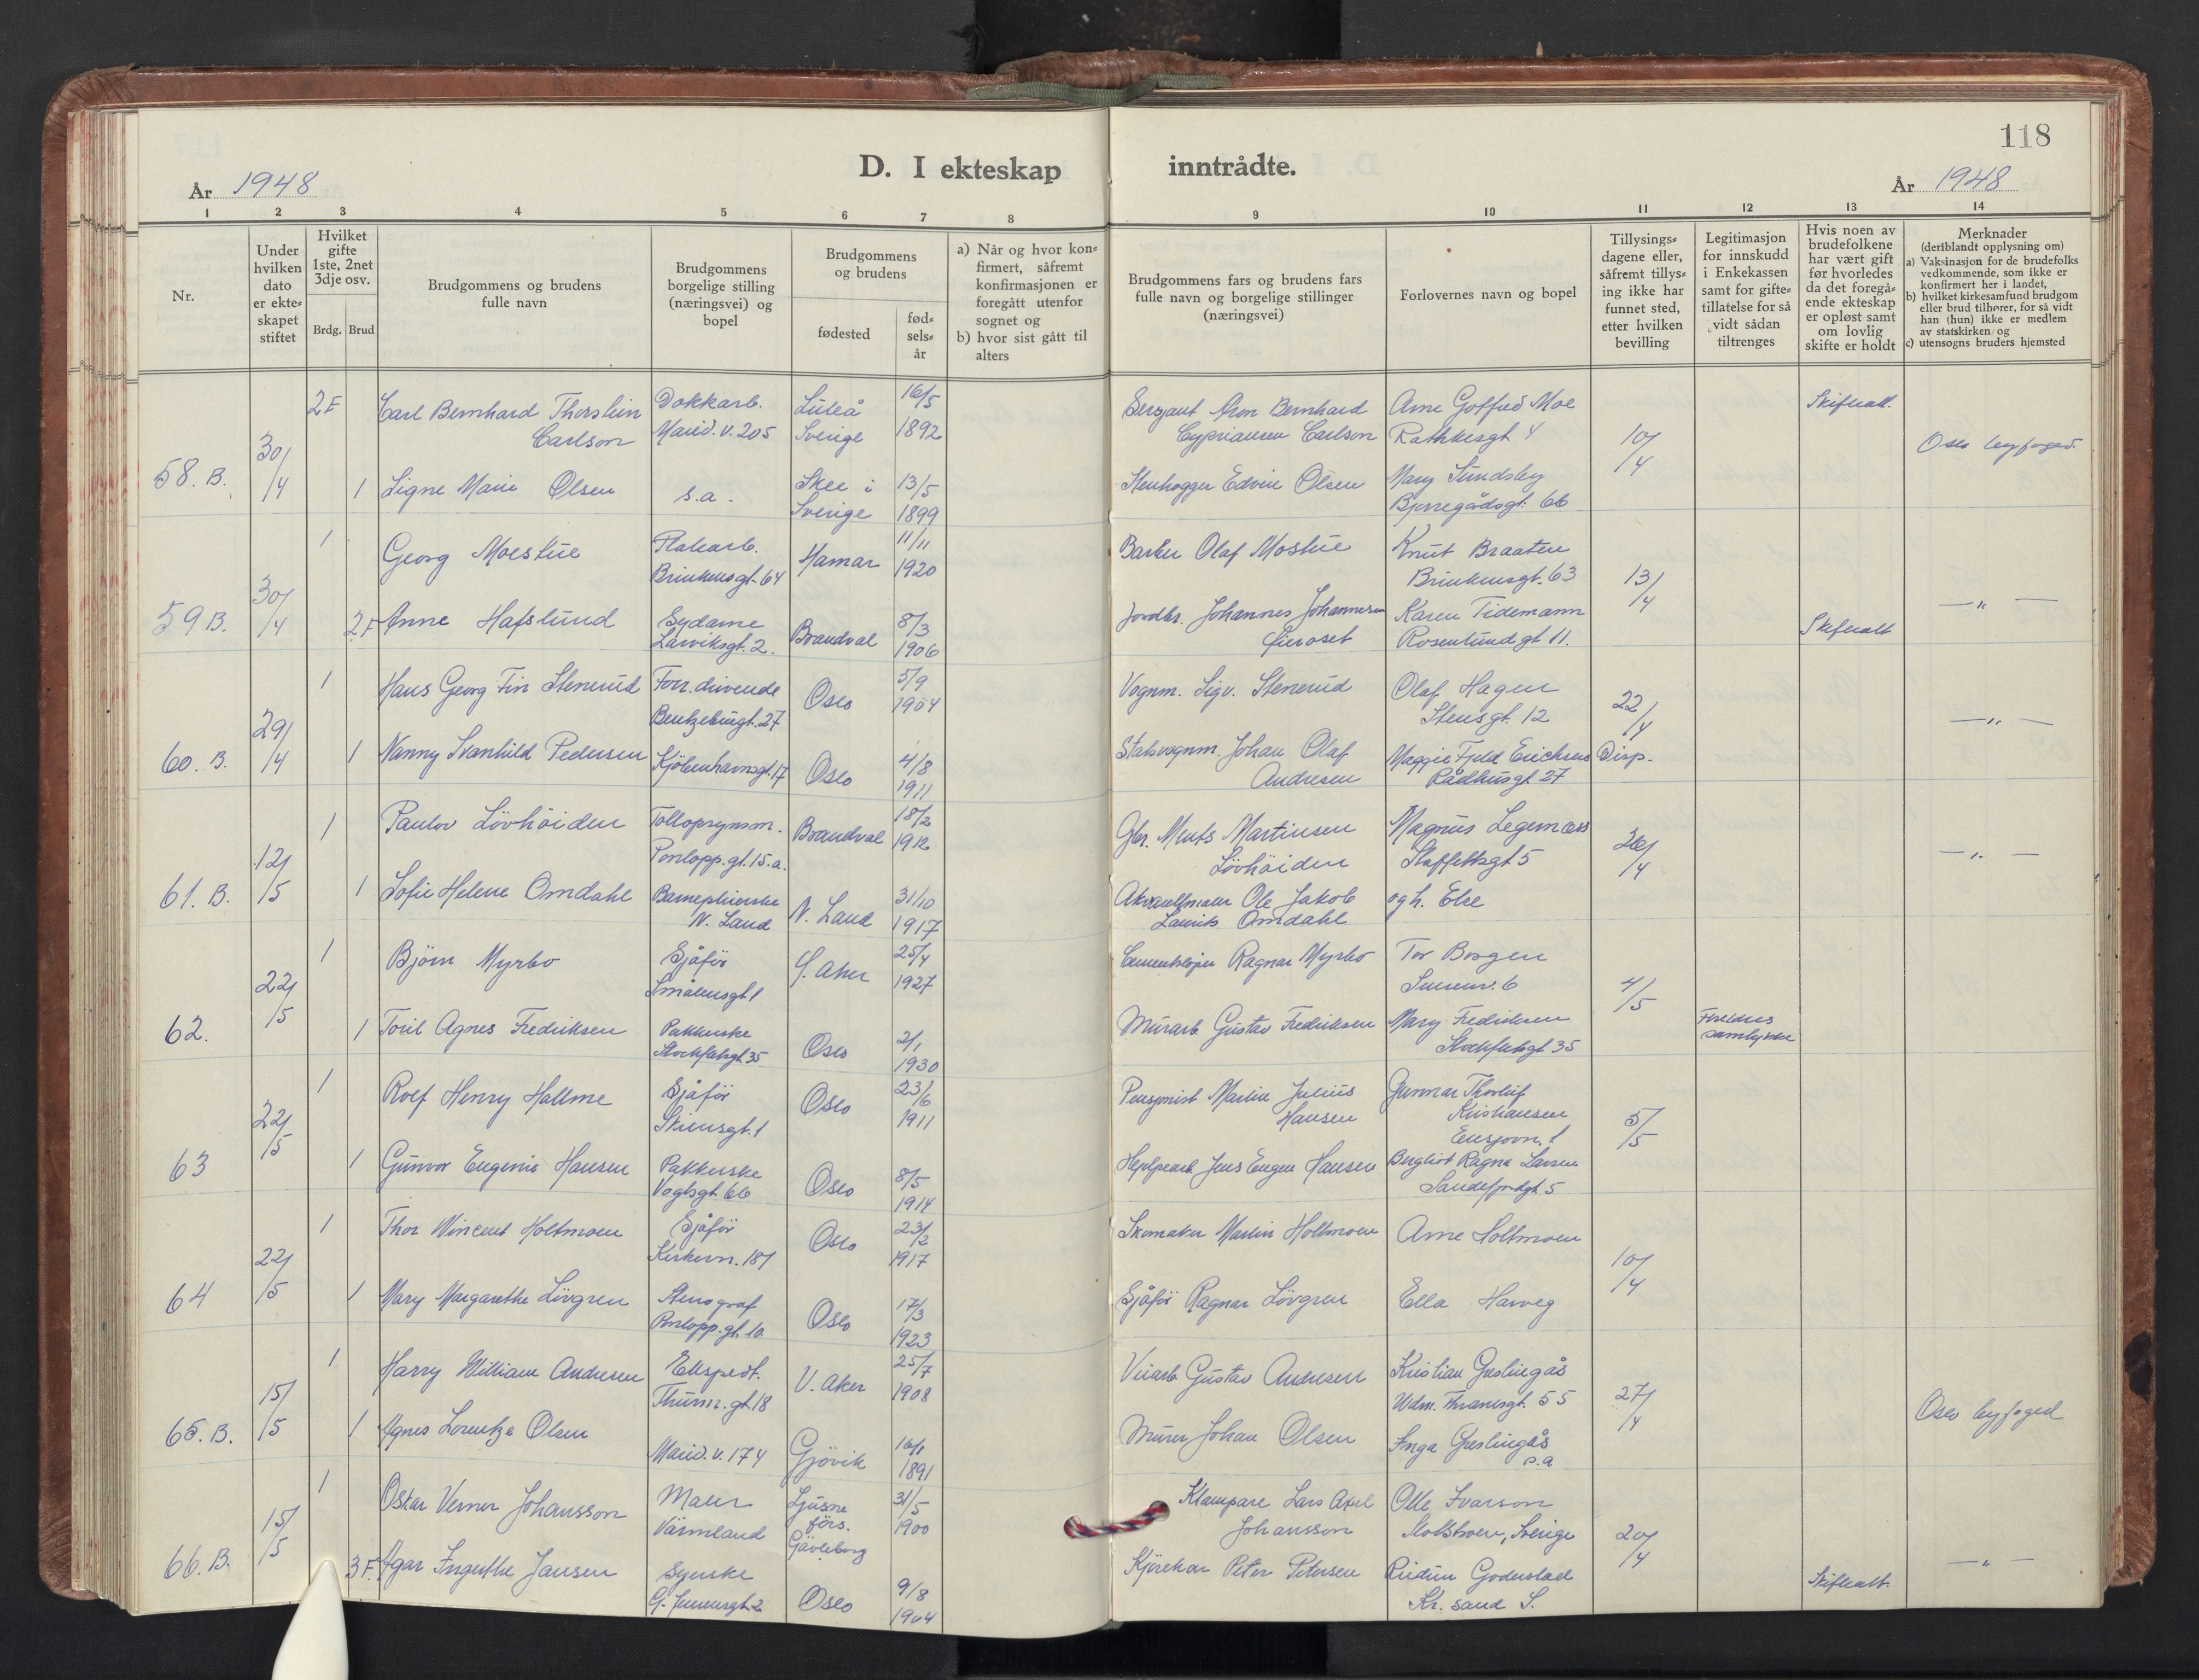 118
D. I ekteskap inntrådte.
År 1948
År 1948
1 2 3 4 5 6 7 8 9 10 11 12 13 14
Nr.
Under hvilken dato er ekte-skapet stiftet
Hvilket gifte 1ste, 2net 3dje osv.
Brdg. Brud
Brudgommens og brudens fulle navn
Brudgommens borgelige stilling (næringsvei) og bopel
Brudgommens og brudens
fødested
fød-sels-år
a) Når og hvor kon-firmert, såfremt konfirmasjonen er foregått utenfor sognet og
b) hvor sist gått til alters
Brudgommens fars og brudens fars fulle navn og borgelige stillinger (næringsvei)
Forlovernes navn og bopel
Tillysings-dagene eller, såfremt tillys-ing ikke har funnet sted, etter hvilken bevilling
Legitimasjon for innskudd i Enkekassen samt for gifte-tillatelse for så vidt sådan tiltrenges
Hvis noen av brudefolkene har vært gift før hvorledes da det foregå-ende ekteskap er opløst samt om lovlig skifte er holdt
Merknader (deriblandt opplysning om)
a) Vaksinasjon for de brudefolks vedkommende, som ikke er konfirmert her i landet,
b) hvilket kirkesamfund brudgom eller brud tilhører, for så vidt han (hun) ikke er medlem av statskirken og
c) utensogns bruders hjemsted
58. B. 30/4
2 F Carl Bernhard Thorstein Carlson Dokkarb. Marid.v. 205 Luleå Sverige 16/5 1892 Sersjant Aron Bernhard Cyprianson Carlson Arne Gotfred Moe Rathkesgt 4 10/4 Skifteatt. Oslo byfoged
1 Signe Marie Olsen s.a. Skee i Sverige 13/5 1899 Stenhogger Edvin Olsen Mary Sundsby Bjerregårdsgt. 66
59 B. 30/4
1 Georg Moestue Platearb. Brinkensgt. 64 Hamar 11/11 1920 Barber Olaf Mostue Knut Braaten Brinkensgt. 63 13/4 — " —
2 F Anne Hafslund Sydame Larviksgt. 2. Brandval 8/3 1906 Jordbr. Johannes Johannesen Karen Tidemann Rosenlundgt 11. Skifteatt
60. B. 29/4
1 Hans Georg Fin Stenerud Forr.drivende Bentzebrugt. 27 Oslo 5/9 1904 Vognm. Sigv. Stenerud Olaf Hagen Stensgt. 12 22/4 — " —
1 Nanny Svanhild Pedersen Kjøbenhavnsgt. 17 Oslo 4/8 1911 Stalsvognm. Johan Olaf Andresen Maggie Fjeld Erichsen Rådhusgt. 27 Disp.
61. B. 12/5
1 Paulov Lövhöiden Tollopsynsm. Forlopp.gt. 15.a. Brandval 18/2 1912 Gbr. Martinsen Lövhöiden Magnus Legernæss Staffeldtsgt 5 26/4 — " —
1 Sofie Helene Omdahl Barnepleierske N. Land N. Land 31/10 1917 Ole Jakob Laurits Omdahl og h. Else
62. 22/5
1 Björn Myrbo Sjåför Smålensgt. 1 Ö. Aker 25/4 1927 Ragnar Myrbo Tor Borgen 4/5
1 Toril Agnes Fredriksen Pakkerske Stockfletsgt. 35 Oslo 2/1 1930 Murarb Gustav Fredriksen Mary Fredriksen Stockfletsgt 35 Foreldres samtykke
63 22/5
1 Rolf Henry Hallme Sjåför Skiensgt. 1 Oslo 23/6 1911 Pensjonist Martin Julius Hansen Gunnar Thorleif Kristiansen Ensjovn. 1 5/5
1 Gunvor Eugenie Hansen Pakkerske Vogtsgt. 66 Oslo 8/5 1914 Hjelpearb Jens Eugen Hansen Bergliot Ragna Larsen Sandefjordgt 5
64 22/5
1 Thor Wincent Holtmoen Sjåför Kirkevn. 187 Oslo 23/2 1917 Skomaker Martin Holtmoen Arne Holtmoen 10/4
1 Mary Margarethe Lövgren Stenograf Forlopp.gt. 10 Oslo 17/3 1923 Sjåför Ragnar Lövgren Ella Harveg
65. B. 15/5
1 Harry William Andresen Ekspedt. Thurm.gt. 18 V. Aker 25/7 1908 Gustav Andresen Kristian Græslingås Wdm. Thranesgt. 55 27/4 Oslo byfoged
1 Agnes Lorentze Olsen Marid.v. 174 Gjövik 16/1 1891 Murer Johan Olsen Inga Græslingås s.a
66. B. 15/5
1 Oskar Verner Johansson Maler Värmland Ljusne förs. Gävleborg 31/5 1900 Klampare Lars Axel Johansson Olle Ivarson Sverige 20/4 — " —
3 F. Agar Ingerthe Jansen Syerske G. Jensensgt. 2 Oslo 9/8 1904 Kjörekar Peter Petersen Reidun Goderstad Kr. sand S. Skifteatt